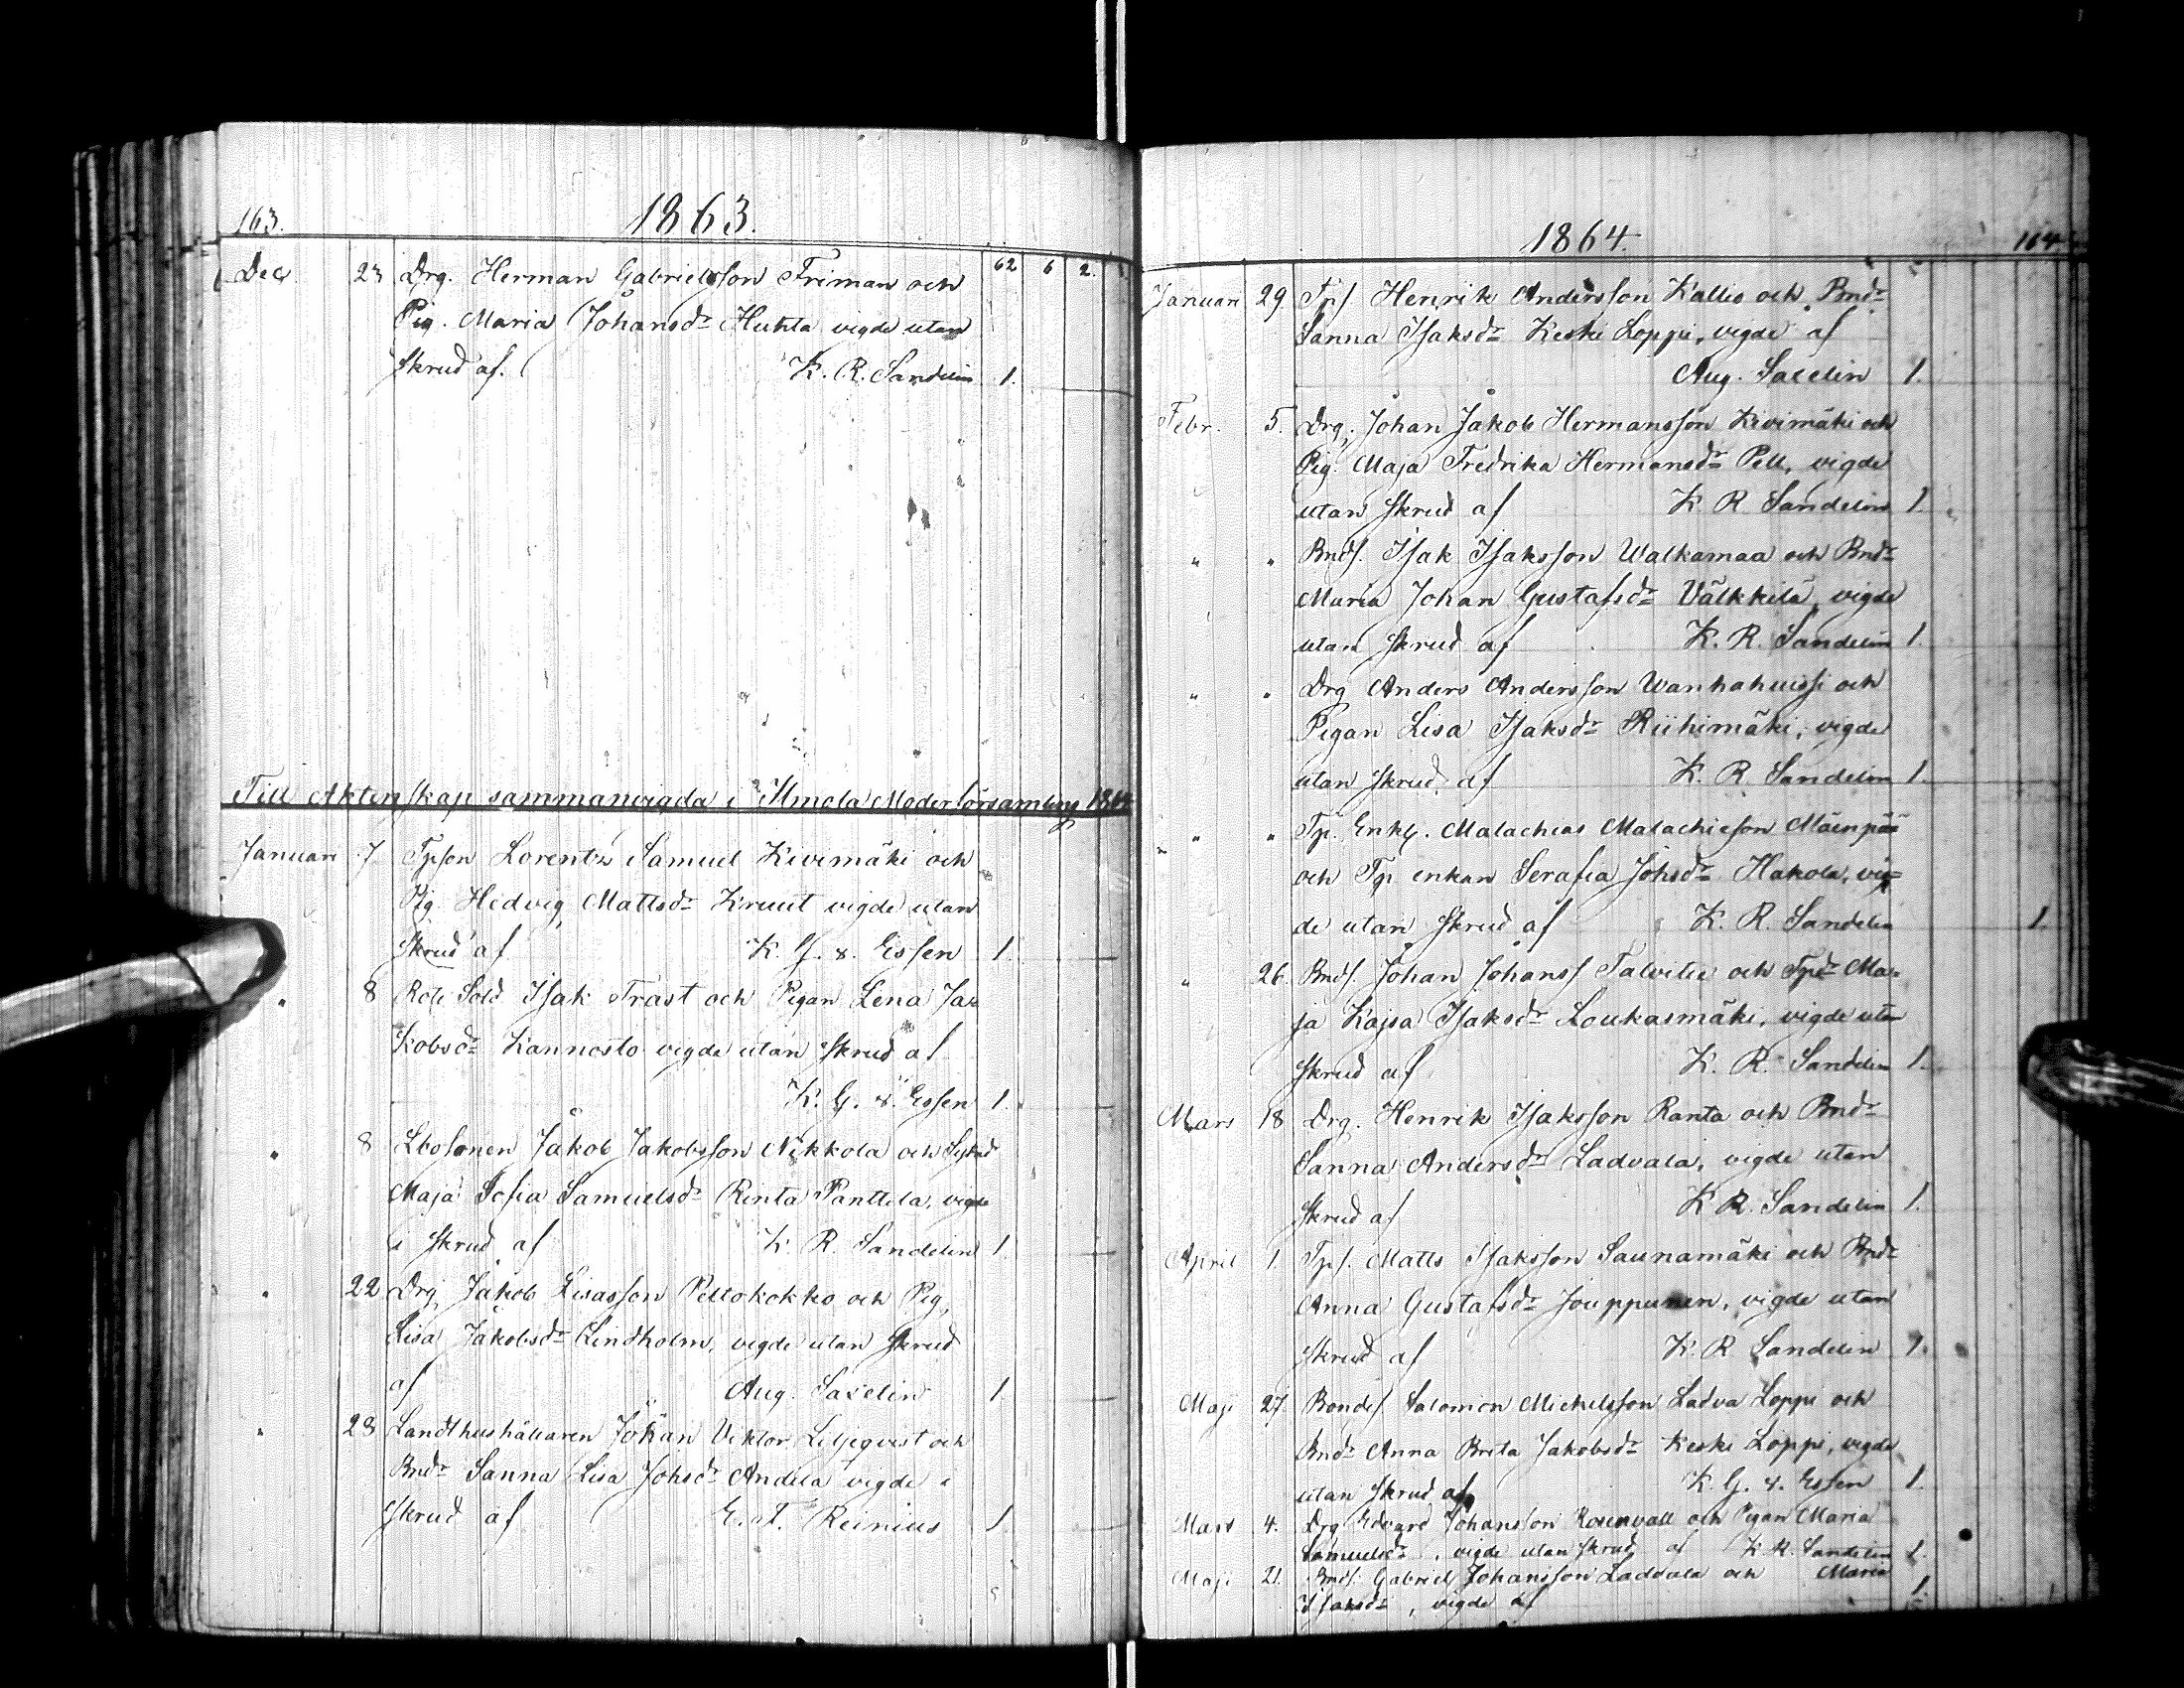 163.
1863.
Dec 23 Drg. Herman Gabrielsson Friman och 62 6 2.
Pig. Maria Johansdr Huhta vigde utan
skrud af. K. R. Sandelin 1.
Till Äktenskap sammanvigda i Ilmola Moderförsamling 1864
Januari 7 Tpson Lorentz Samuel Kivimäki och
Pig. Hedvig Mattsdr Kruut vigde utan
skrud af K. G. v. Essen 1.
" 8 Rote Sold Isak Trast och Pigan Lena Ja=
kobsdr Kannosto vigde utan skrud af
K. G. v. Essen 1.
" 8 Lbosonen Jakob Jakobsson Nikkola och
Maja Sofia Samuelsdr Rinta Panttila, vigde
i skrud af K. R. Sandelin 1.
" 22 Drg Jakob Lisasson Peltokokko och Pig.
Lisa Jakobsdr Lindholm, vigde utan skrud
af Aug. Saxelin 1.
" 28 Landthushållaren Johan Viktor Liljeqvist och
Bndr Sanna Lisa Johsdr Andila vigde i
skrud af E. A. Reinius 1.
1864.
164
Januari 29. Tps. Henrik Andersson Kallio och Bndr
Sanna Isaksdr Keski Loppi, vigde af
Aug. Saxelin 1.
Febr. 5. Drg. Johan Jakob Hermansson Kivimäki och
Pig. Maja Fredrika Hermansdr Pell, vigde
utan skrud af K R Sandelin 1.
" " Bnds. Isak Isaksson Walkamaa och Bndr
Maria Johan Gustafsdr Välkkilä, vigde
utan skrud af K. R. Sandelin 1.
" " Drg Anders Andersson Wanhahuissi och
Pigan Lisa Isaksdr Riihimäki, vigde
utan skrud af K. R. Sandelin 1.
" " Tp. Enkl. Malachias Malachieson Mäenpää
och Tp enkan Serafia Johsdr Hakola, vig=
de utan skrud af K. R. Sandelin 1.
" 26. Bnds. Johan Johanss Talvitie och Tpdr Ma=
ja Kajsa Isaksdr Loukasmäki, vigde utan
skrud af K. R. Sandelin 1.
Mars 18 Drg. Henrik Isaksson Ranta och Bndr
Sanna Andersdr Ladvala, vigde utan
skrud af K R. Sandelin 1.
April 1. Tps. Matts Isaksson Saunamäki och Bndr
Anna Gustafsdr Jouppunen, vigde utan
skrud af K. R Sandelin 1.
Maji 27. Bondes. Salomon Mickelsson Ladva Loppi och
Bndr Anna Brita Jakobsdr Keski Loppi, vigde
utan skrud af K. G. v. Essen 1.
Mars 4. Drg Edvard Johansson Rosenvall och Pigan Maria
Samuelsdr , vigde utan skrud af K. R. Sandelin 1.
Maji 21. Bnds. Gabriel Johansson Laddala och Maria
Isaksdr , vigde af 1.